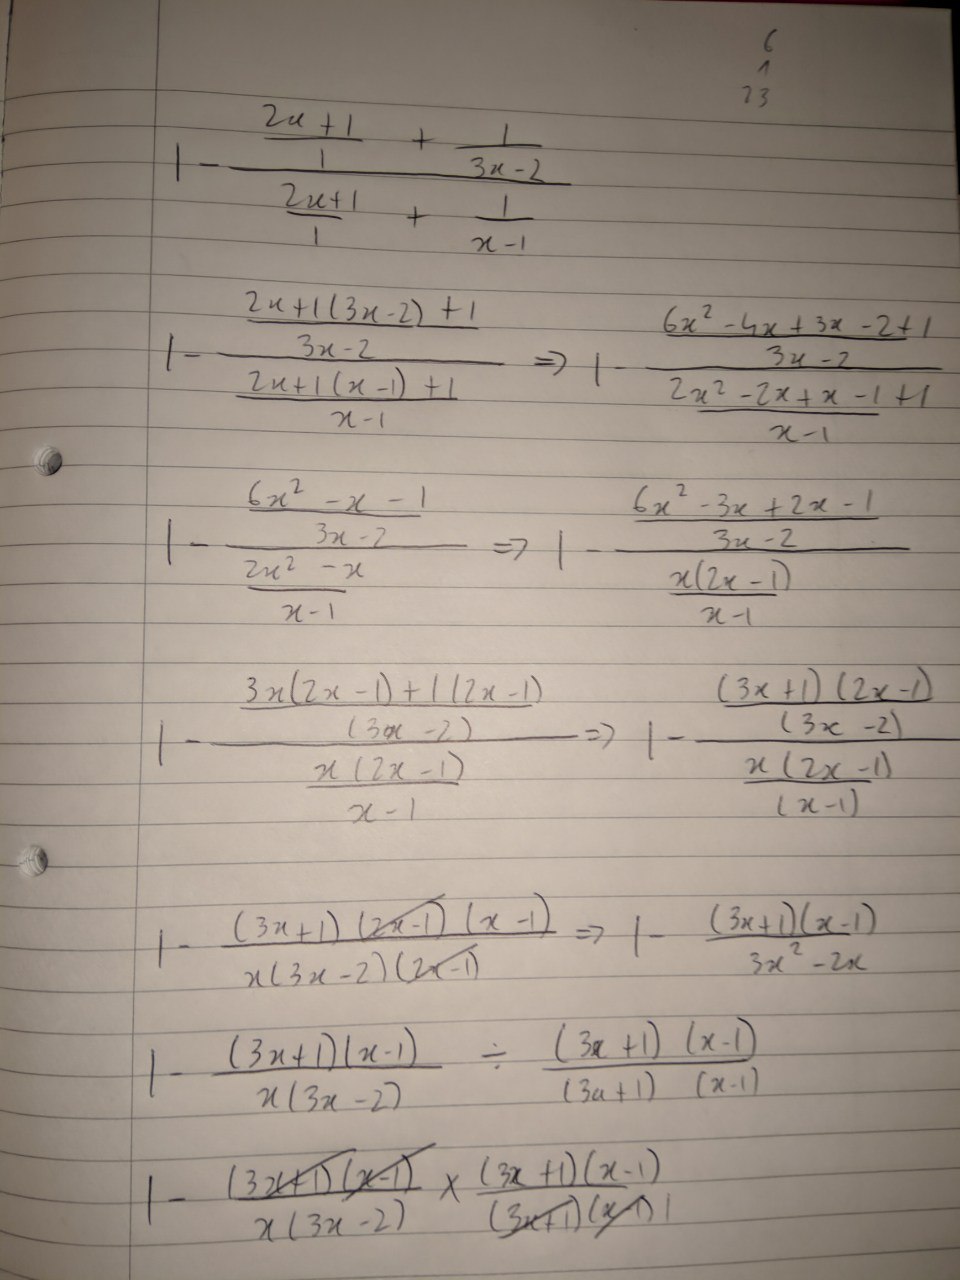 6
1
23
1 - ((2x+1)/1 + 1/(3x-2)) / ((2x+1)/1 + 1/(x-1))
1 - ((2x+1(3x-2)+1)/(3x-2)) / ((2x+1(x-1)+1)/(x-1)) => 1 - ((6x² -4x+3x-2+1)/(3x-2)) / ((2x² -2x+x-1+1)/(x-1))
1 - ((6x² -x-1)/(3x-2)) / ((2x² -x)/(x-1)) => 1 - ((6x² -3x+2x-1)/(3x-2)) / ((x(2x-1))/(x-1))
1 - ((3x(2x-1)+1(2x-1))/(3x-2)) / ((x(2x-1))/(x-1)) => 1 - ((3x+1)(2x-1)/(3x-2)) / ((x(2x-1))/(x-1))
1 - ((3x+1)(2x-1)(x-1))/(x(3x-2)(2x-1)) => 1 - ((3x+1)(x-1))/(3x² -2x)
1 - ((3x+1)(x-1))/(x(3x-2)) ÷ ((3x+1)(x-1))/((3x+1)(x-1))
1 - ((3x+1)(x-1))/(x(3x-2)) × ((3x+1)(x-1))/((3x+1)(x-1)) 1